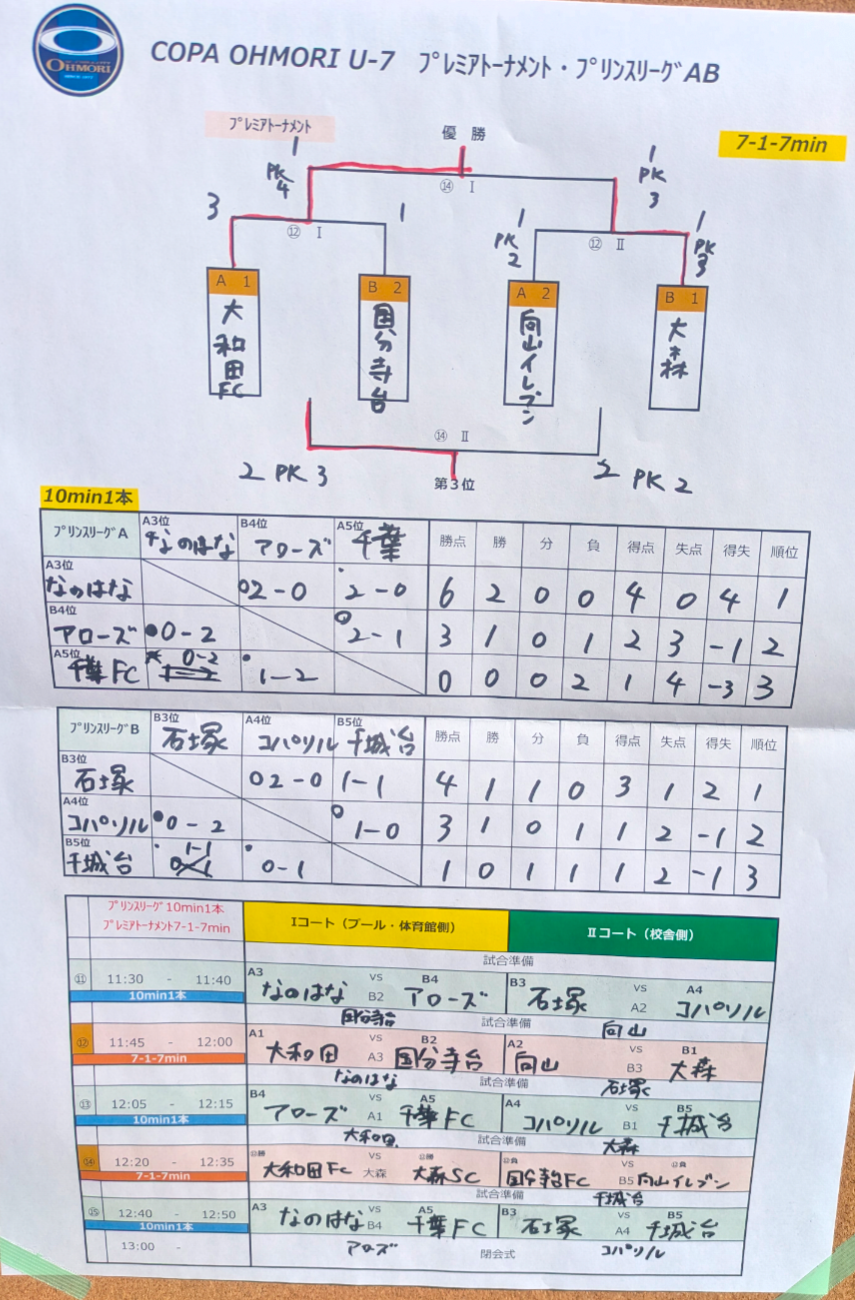 OHMORI
COPA OHMORI U-7 プレミアトーナメント・プリンスリーグAB
プレミアトーナメント
優 勝
7-1-7min
1 PK 4
⑭ Ⅰ
1 PK 3
3
⑫ Ⅰ
1
1 PK 2
⑫ Ⅱ
1 PK 3
A 1
B 2
A 2
B 1
大和田FC
国分寺台
向山イレブン
大森
⑭ Ⅱ
2 PK 3
第3位
2 PK 2
10min1本
プリンスリーグA A3位 なのはな B4位 アローズ A5位 千葉 勝点 勝 分 負 得点 失点 得失 順位
A3位 なのはな 02-0 2-0 6 2 0 0 4 0 4 1
B4位 アローズ ●0-2 ○2-1 3 1 0 1 2 3 -1 2
A5位 千葉FC 0-2 1-2 0 0 0 2 1 4 -3 3
プリンスリーグB B3位 石塚 A4位 コパソル B5位 千城台 勝点 勝 分 負 得点 失点 得失 順位
B3位 石塚 02-0 1-1 4 1 1 0 3 1 2 1
A4位 コパソル ●0-2 ○1-0 3 1 0 1 1 2 -1 2
B5位 千城台 1-1 0-1 1 0 1 1 1 2 -1 3
プリンスリーグ10min1本
プレミアトーナメント7-1-7min
Ⅰコート（プール・体育館側） Ⅱコート（校舎側）
試合準備
⑪ 11:30 - 11:40 A3 なのはな vs B4 アローズ B3 石塚 vs A4 コパソル
10min1本 B2 A2
国分寺台 試合準備 向山
⑫ 11:45 - 12:00 A1 大和田 vs B2 国分寺台 A2 向山 vs B1 大森
7-1-7min A3 B3
なのはな 試合準備 石塚
⑬ 12:05 - 12:15 B4 アローズ vs A5 千葉FC A4 コパソル vs B5 千城台
10min1本 A1 B1
大和田 試合準備 大森
⑭ 12:20 - 12:35 ⑫勝 大和田FC vs ⑫勝 大森SC ⑫負 国分寺台FC vs ⑫負 向山イレブン
7-1-7min 大森 B5
試合準備 千城台
⑮ 12:40 - 12:50 A3 なのはな vs A5 千葉FC B3 石塚 vs B5 千城台
10min1本 B4 A4
13:00 - アローズ 閉会式 コパソル